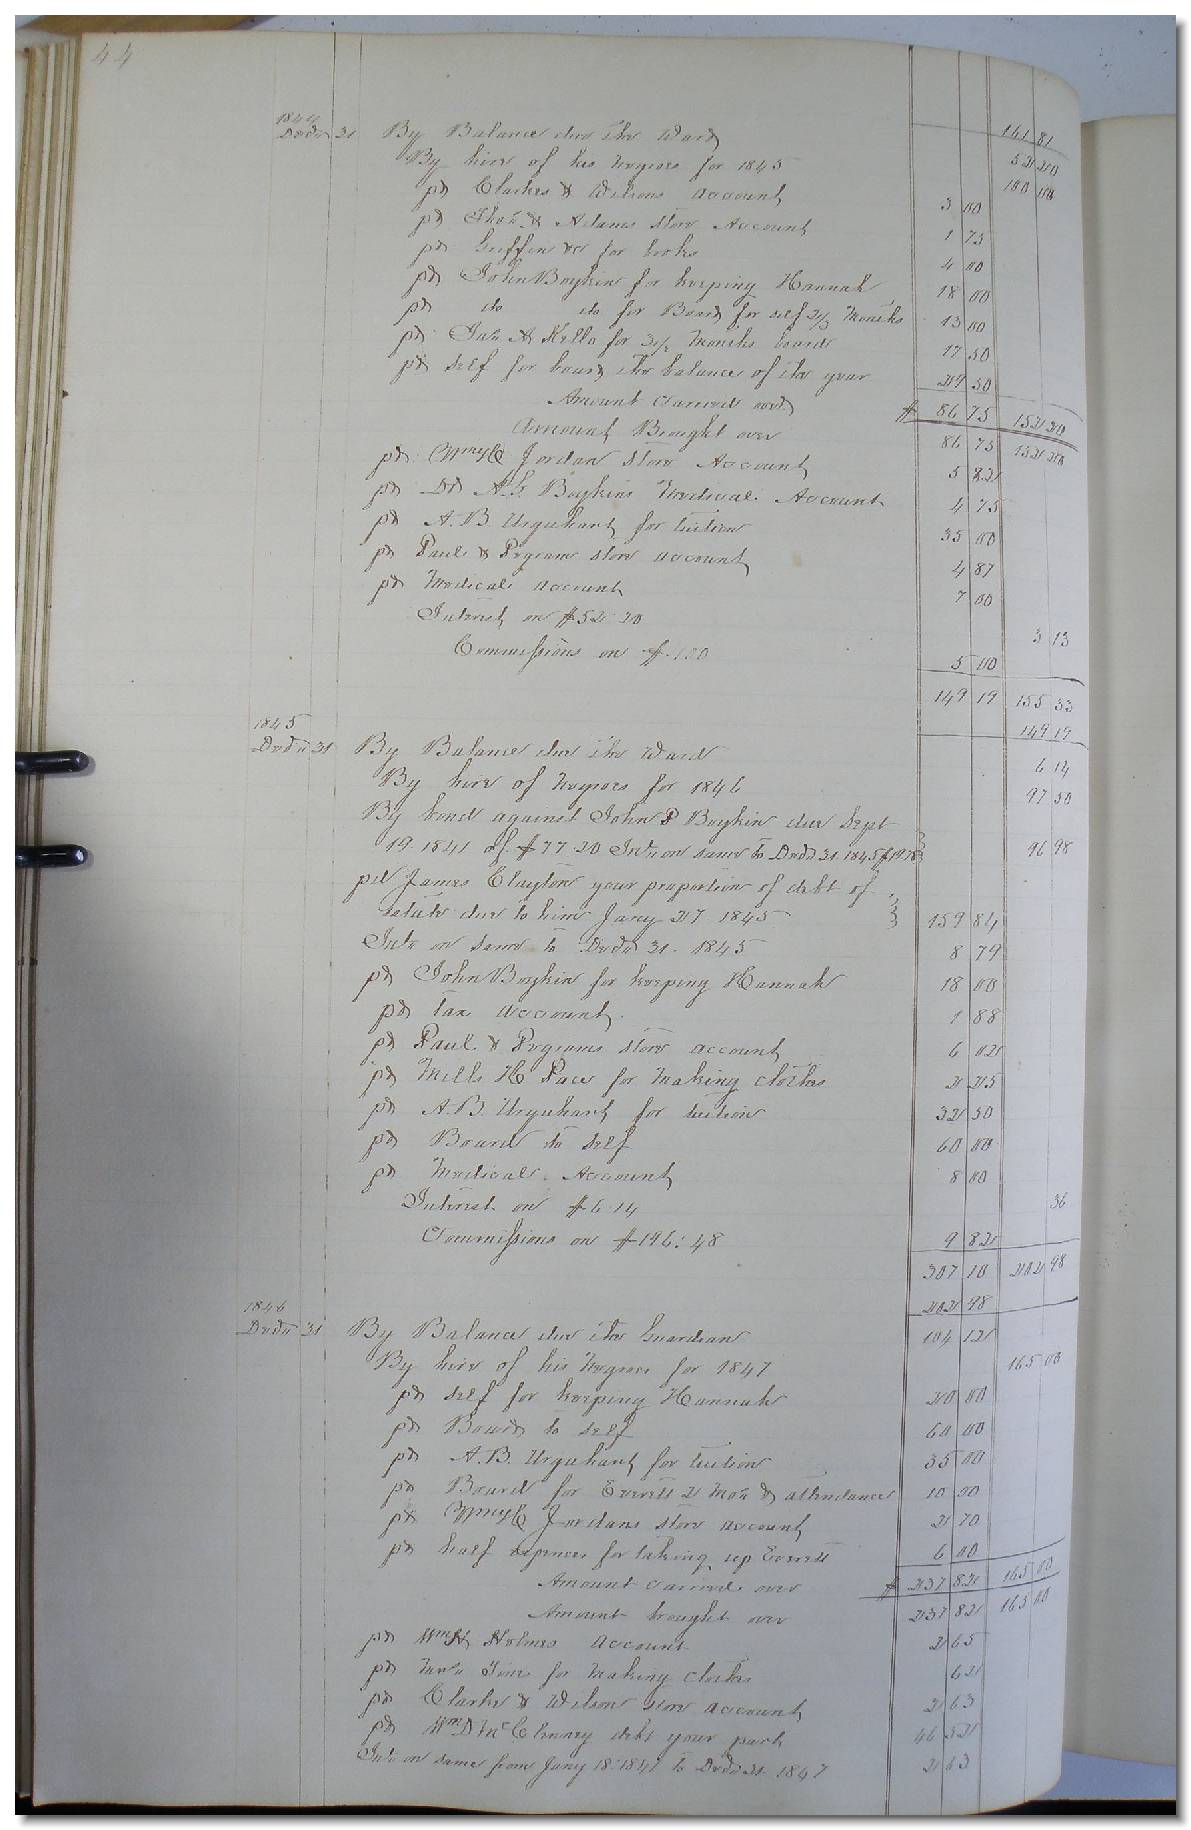 44
1844 161 81
Decr 31 By Balance due the Ward 52 20
By hire of his negroes for 1845 100 00
pd Clarkes & Wilsons account 3 00
pd Thos & Adams store Account 1 75
pd Griffin &c for books 4 00
pd John Boykin for keeping Hannah 18 00
pd do do for Board for self 2 2/3 Months 13 00
pd Jas A Kello for 3 1/2 Months board 17 50
pd self for board the balance of the year 29 50
Amount Carried over $ 86 75 152 20
Amount Brought over 86 75 152 20
pd Jordan Store Account 5 82
pd Dr A.G. Boykins Medical Account 4 75
pd A.B. Urquhart for tuition 35 00
pd Paul & Pegrams store account 4 87
pd Medical account 7 00
Interest on $52.20 3 13
Commissions on $100 5 00
149 19 155 33
1845 149 19
Decr 31 By Balance due the Ward 6 14
By hire of Negroes for 1846 97 50
By bond against John P Boykin due Sept
19. 1841 of $77.20 Intr on same to Decr 31. 1845 $19.78 96 98
pd James Clayton your proportion of debt of
estate due to him Jany 27 1845 159 84
Intr on same to Decr 31. 1845 8 79
pd John Boykin for keeping Hannah 18 00
pd tax account 1 88
pd Paul & Pegrams store account 6 02
pd Mills H Pace for Making clothes 2 25
pd A.B. Urquhart for tuition 32 50
pd Board to self 60 00
pd Medical Account 8 00
Interest on $6.14 36
Commissions on $196:48 9 82
307 10 202 98
1846 202 98
Decr 31 By Balance due the Guardian 104 12
By hire of his Negroes for 1847 165 00
pd self for keeping Hannah 20 00
pd Board to self 60 00
pd A.B. Urquhart for tuition 35 00
pd Board for Everett 2 Mos & attendance 10 00
pd Jordans store account 2 70
pd half expences for taking up Everett 6 00
Amount Carried over $ 237 82 165 00
Amount brought over 237 82 165 00
pd Wm H Holmes Account 2 65
pd for Making clothes 62
pd Clarke & Wilson store account 2 63
pd Wm D McClenney debt your part 46 52
Intr on same from Jany 18. 1847 to Decr 31. 1847 2 63